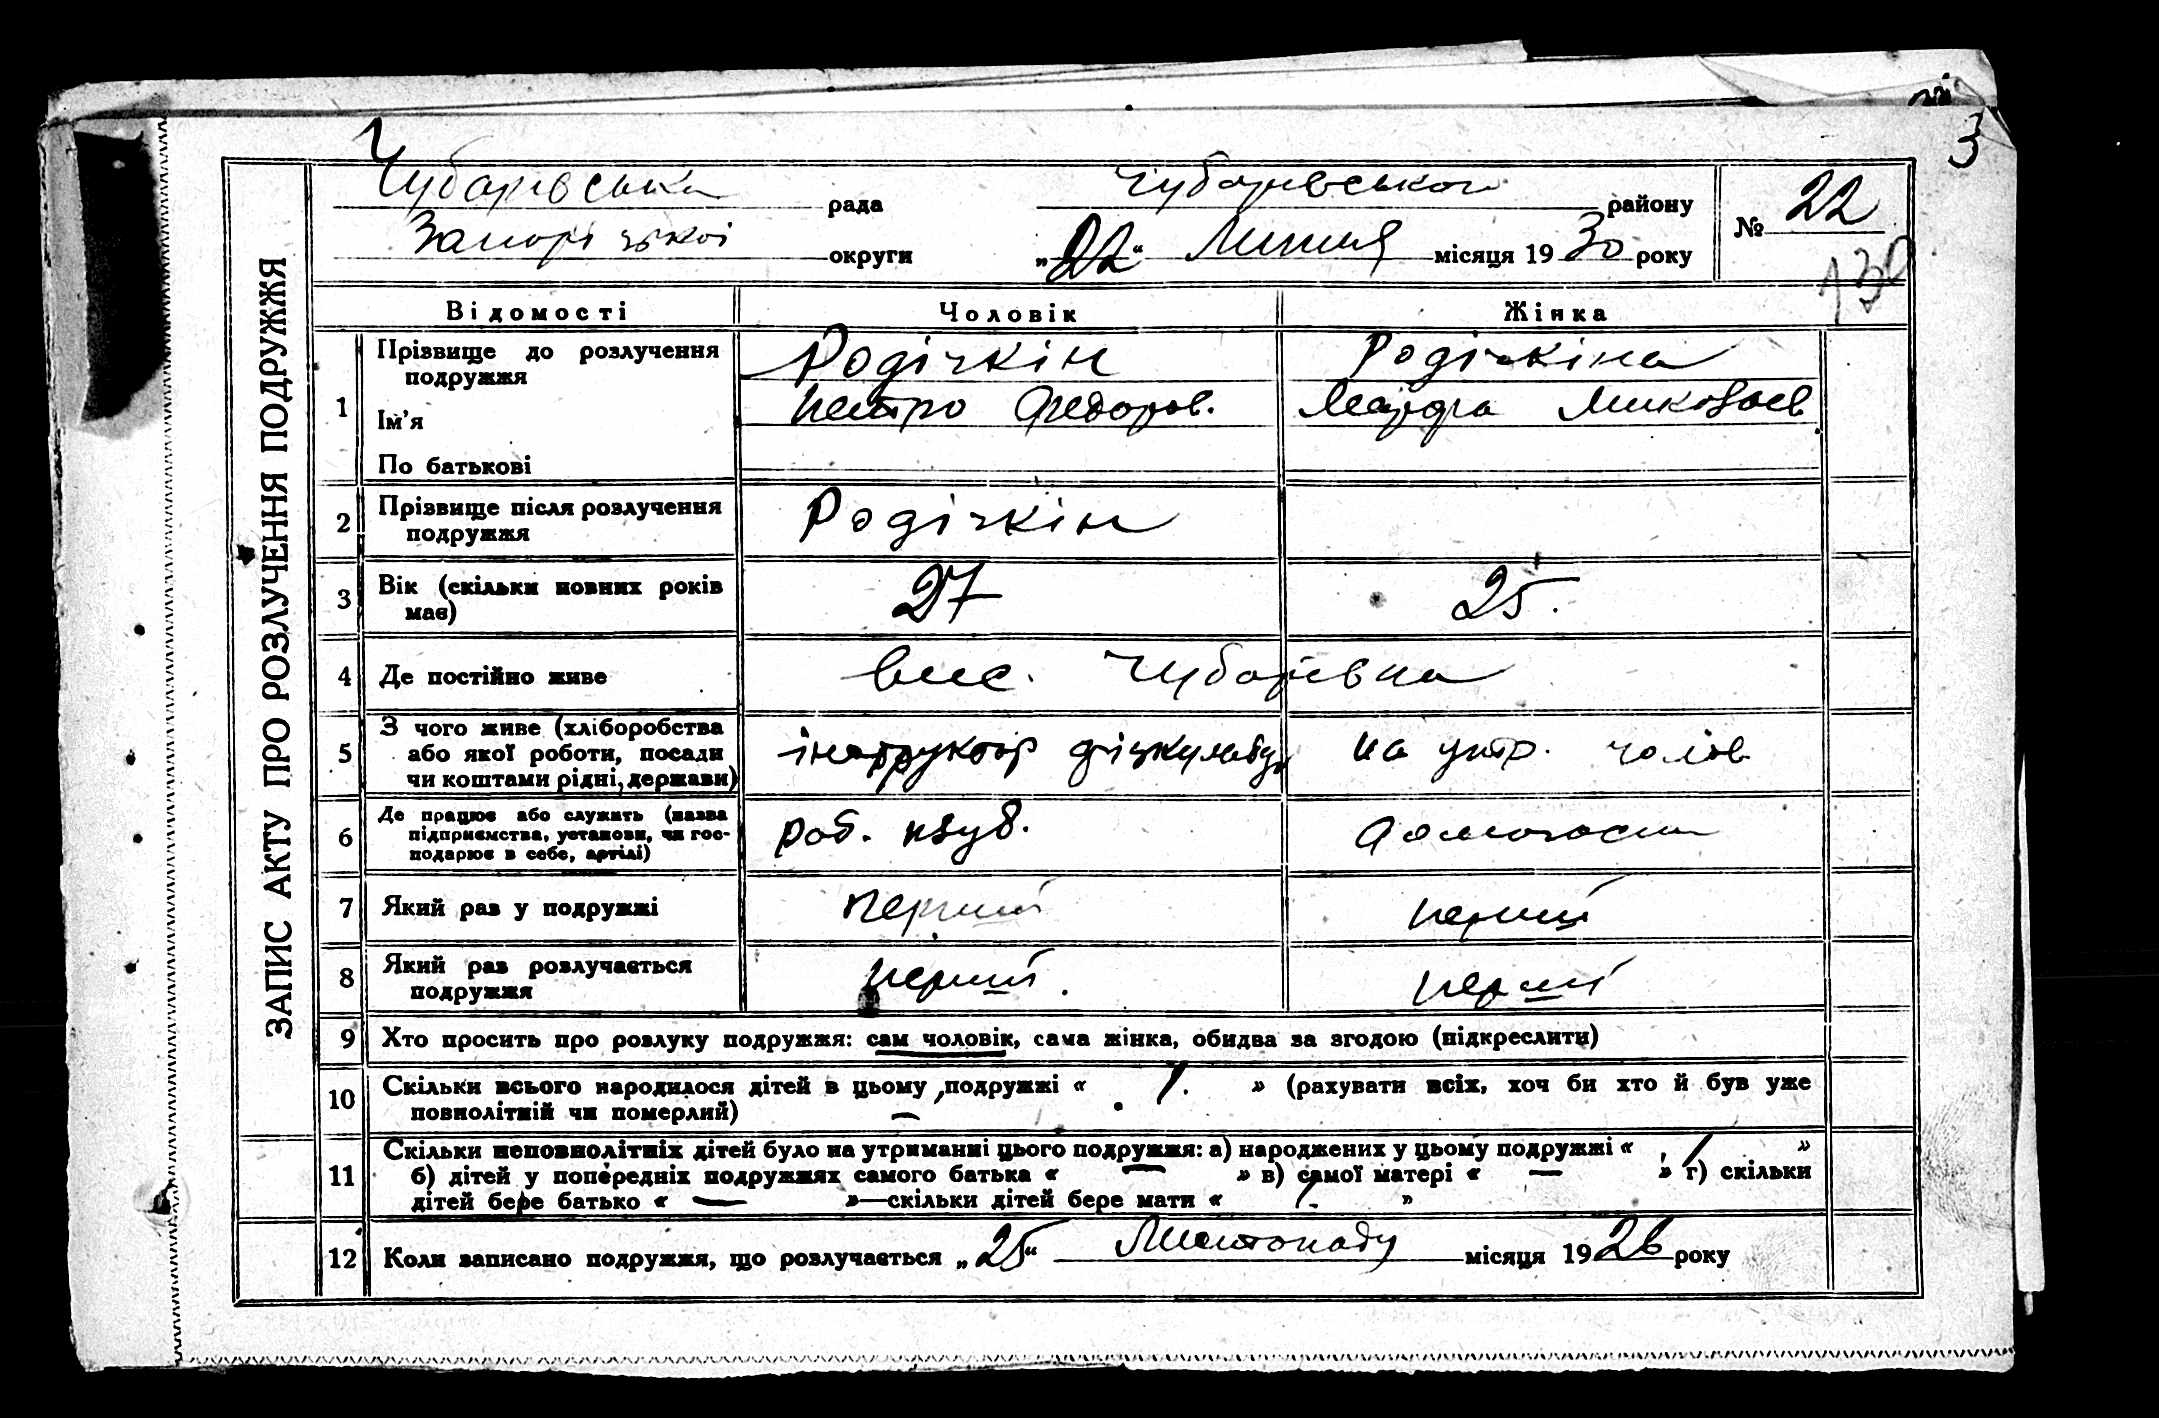 3
Чубарівська рада Чубарівського району № 22
Запорізької округи „22“ Липня місяця 1930 року
130
ЗАПИС АКТУ ПРО РОЗЛУЧЕННЯ ПОДРУЖЖЯ
Відомості Чоловік Жінка
1 Прізвище до розлучення подружжя Родічкін Родічкіна
Ім'я Петро Федоров. Марфа Миколаєв
По батькові
2 Прізвище після розлучення подружжя Родічкін
3 Вік (скільки повних років має) 27 25.
4 Де постійно живе Чубарівка
5 З чого живе (хліборобства або якої роботи, посади чи коштами рідні, держави) інструктор фізкультур на утр. чолов
6 Де працює або служить (назва підприємства, установи, чи господарює в себе, артілі) роб. клуб. домогосп
7 Який раз у подружжі перший перший
8 Який раз розлучається подружжя перший. перший
9 Хто просить про розлуку подружжя: сам чоловік, сама жінка, обидва за згодою (підкреслити)
10 Скільки всього народилося дітей в цьому подружжі « 1. » (рахувати всіх, хоч би хто й був уже
повнолітній чи померлий)
11 Скільки неповнолітніх дітей було на утриманні цього подружжя: а) народжених у цьому подружжі « 1 »
б) дітей у попередніх подружжях самого батька « — » в) самої матері « — » г) скільки
дітей бере батько « — »—скільки дітей бере мати « 1. »
12 Коли записано подружжя, що розлучається „25“ Листопаду місяця 1926 року